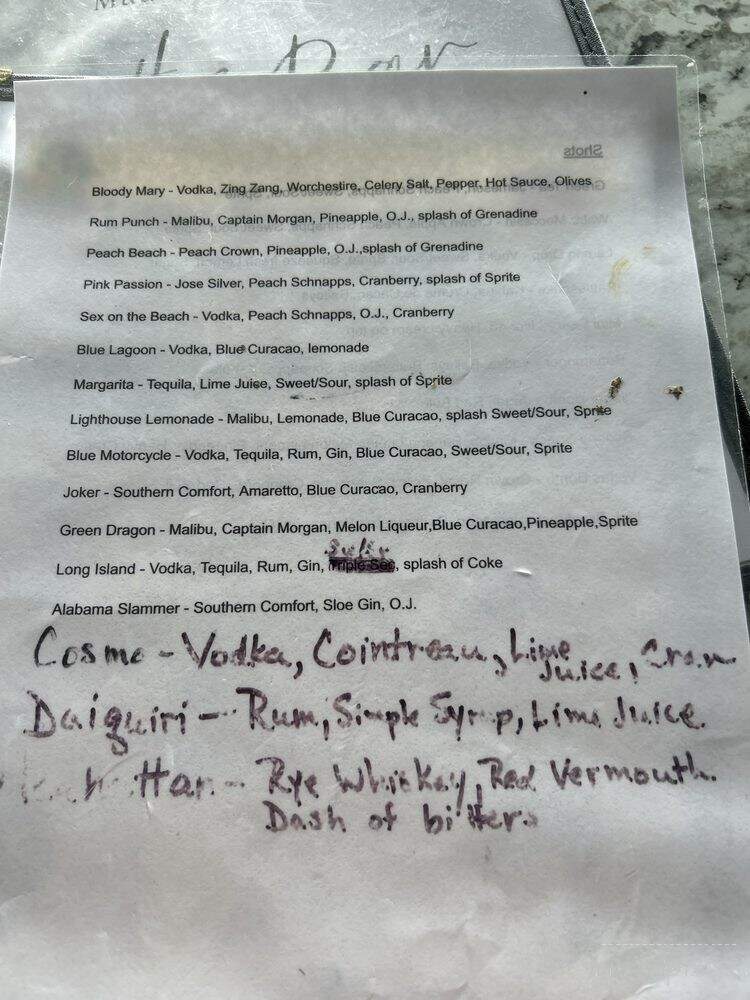 Shots
Bloody Mary - Vodka, Zing Zang, Worchestire, Celery Salt, Pepper, Hot Sauce, Olives
Rum Punch - Malibu, Captain Morgan, Pineapple, O.J., splash of Grenadine
Peach Beach - Peach Crown, Pineapple, O.J.,splash of Grenadine
Pink Passion - Jose Silver, Peach Schnapps, Cranberry, splash of Sprite
Sex on the Beach - Vodka, Peach Schnapps, O.J., Cranberry
Blue Lagoon - Vodka, Blue Curacao, lemonade
Margarita - Tequila, Lime Juice, Sweet/Sour, splash of Sprite
Lighthouse Lemonade - Malibu, Lemonade, Blue Curacao, splash Sweet/Sour, Sprite
Blue Motorcycle - Vodka, Tequila, Rum, Gin, Blue Curacao, Sweet/Sour, Sprite
Joker - Southern Comfort, Amaretto, Blue Curacao, Cranberry
Green Dragon - Malibu, Captain Morgan, Melon Liqueur,Blue Curacao,Pineapple,Sprite
Long Island - Vodka, Tequila, Rum, Gin, Triple Sec, splash of Coke
Alabama Slammer - Southern Comfort, Sloe Gin, O.J.
Cosmo - Vodka, Cointreau, Lime Juice, Cran
Daiquiri - Rum, Simple Syrup, Lime Juice.
Han - Rye Whiskey, Red Vermouth.
Dash of bitters